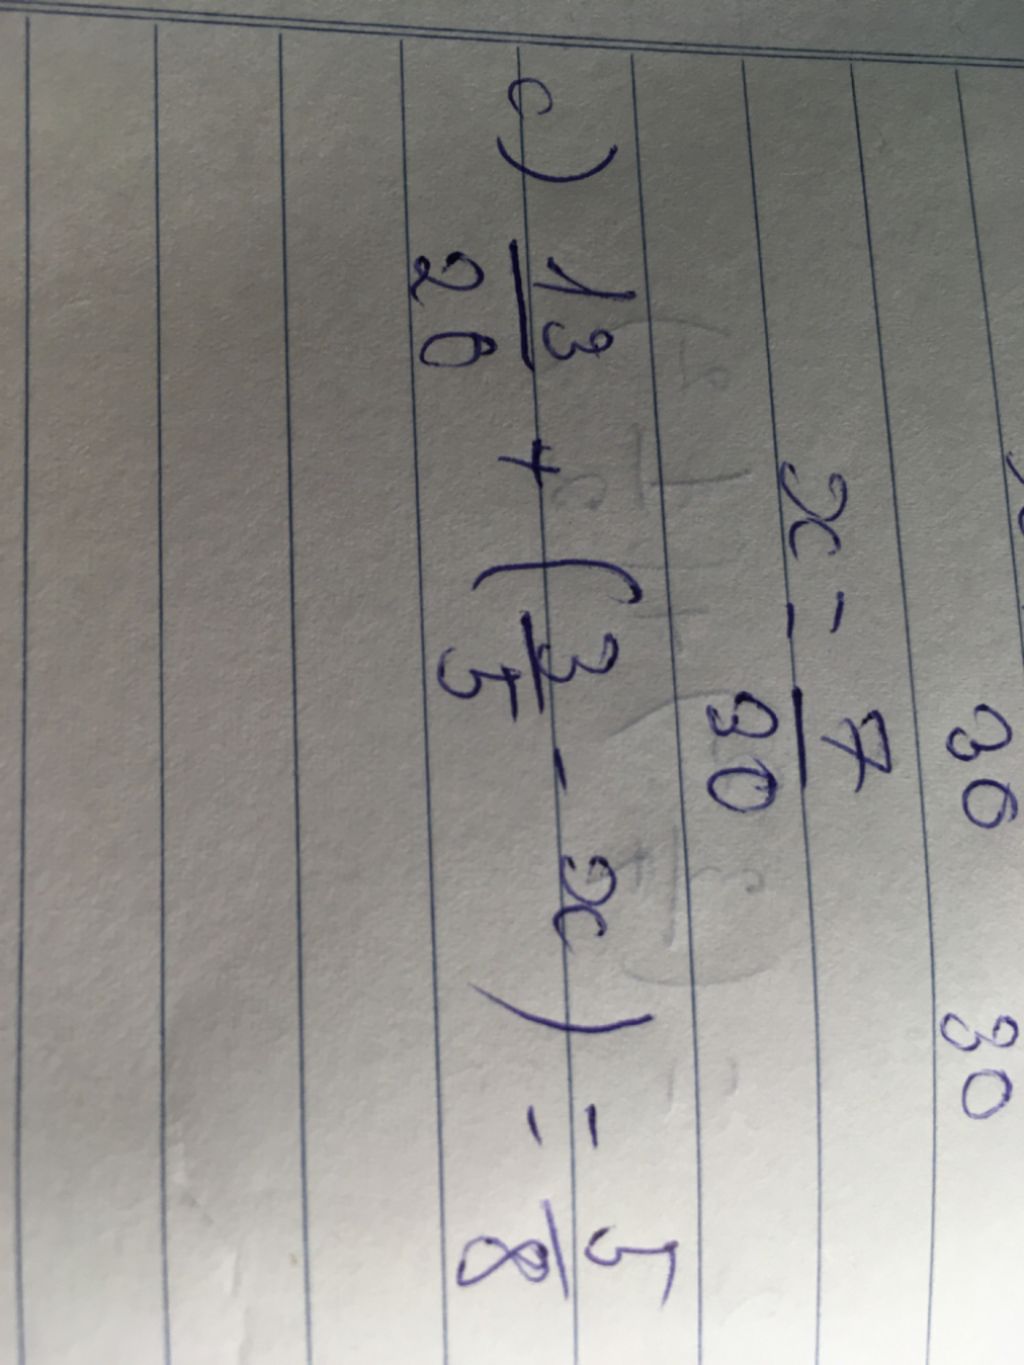 30 30
x = 7/30
c) 13/20 + (3/5 - x) = 5/8